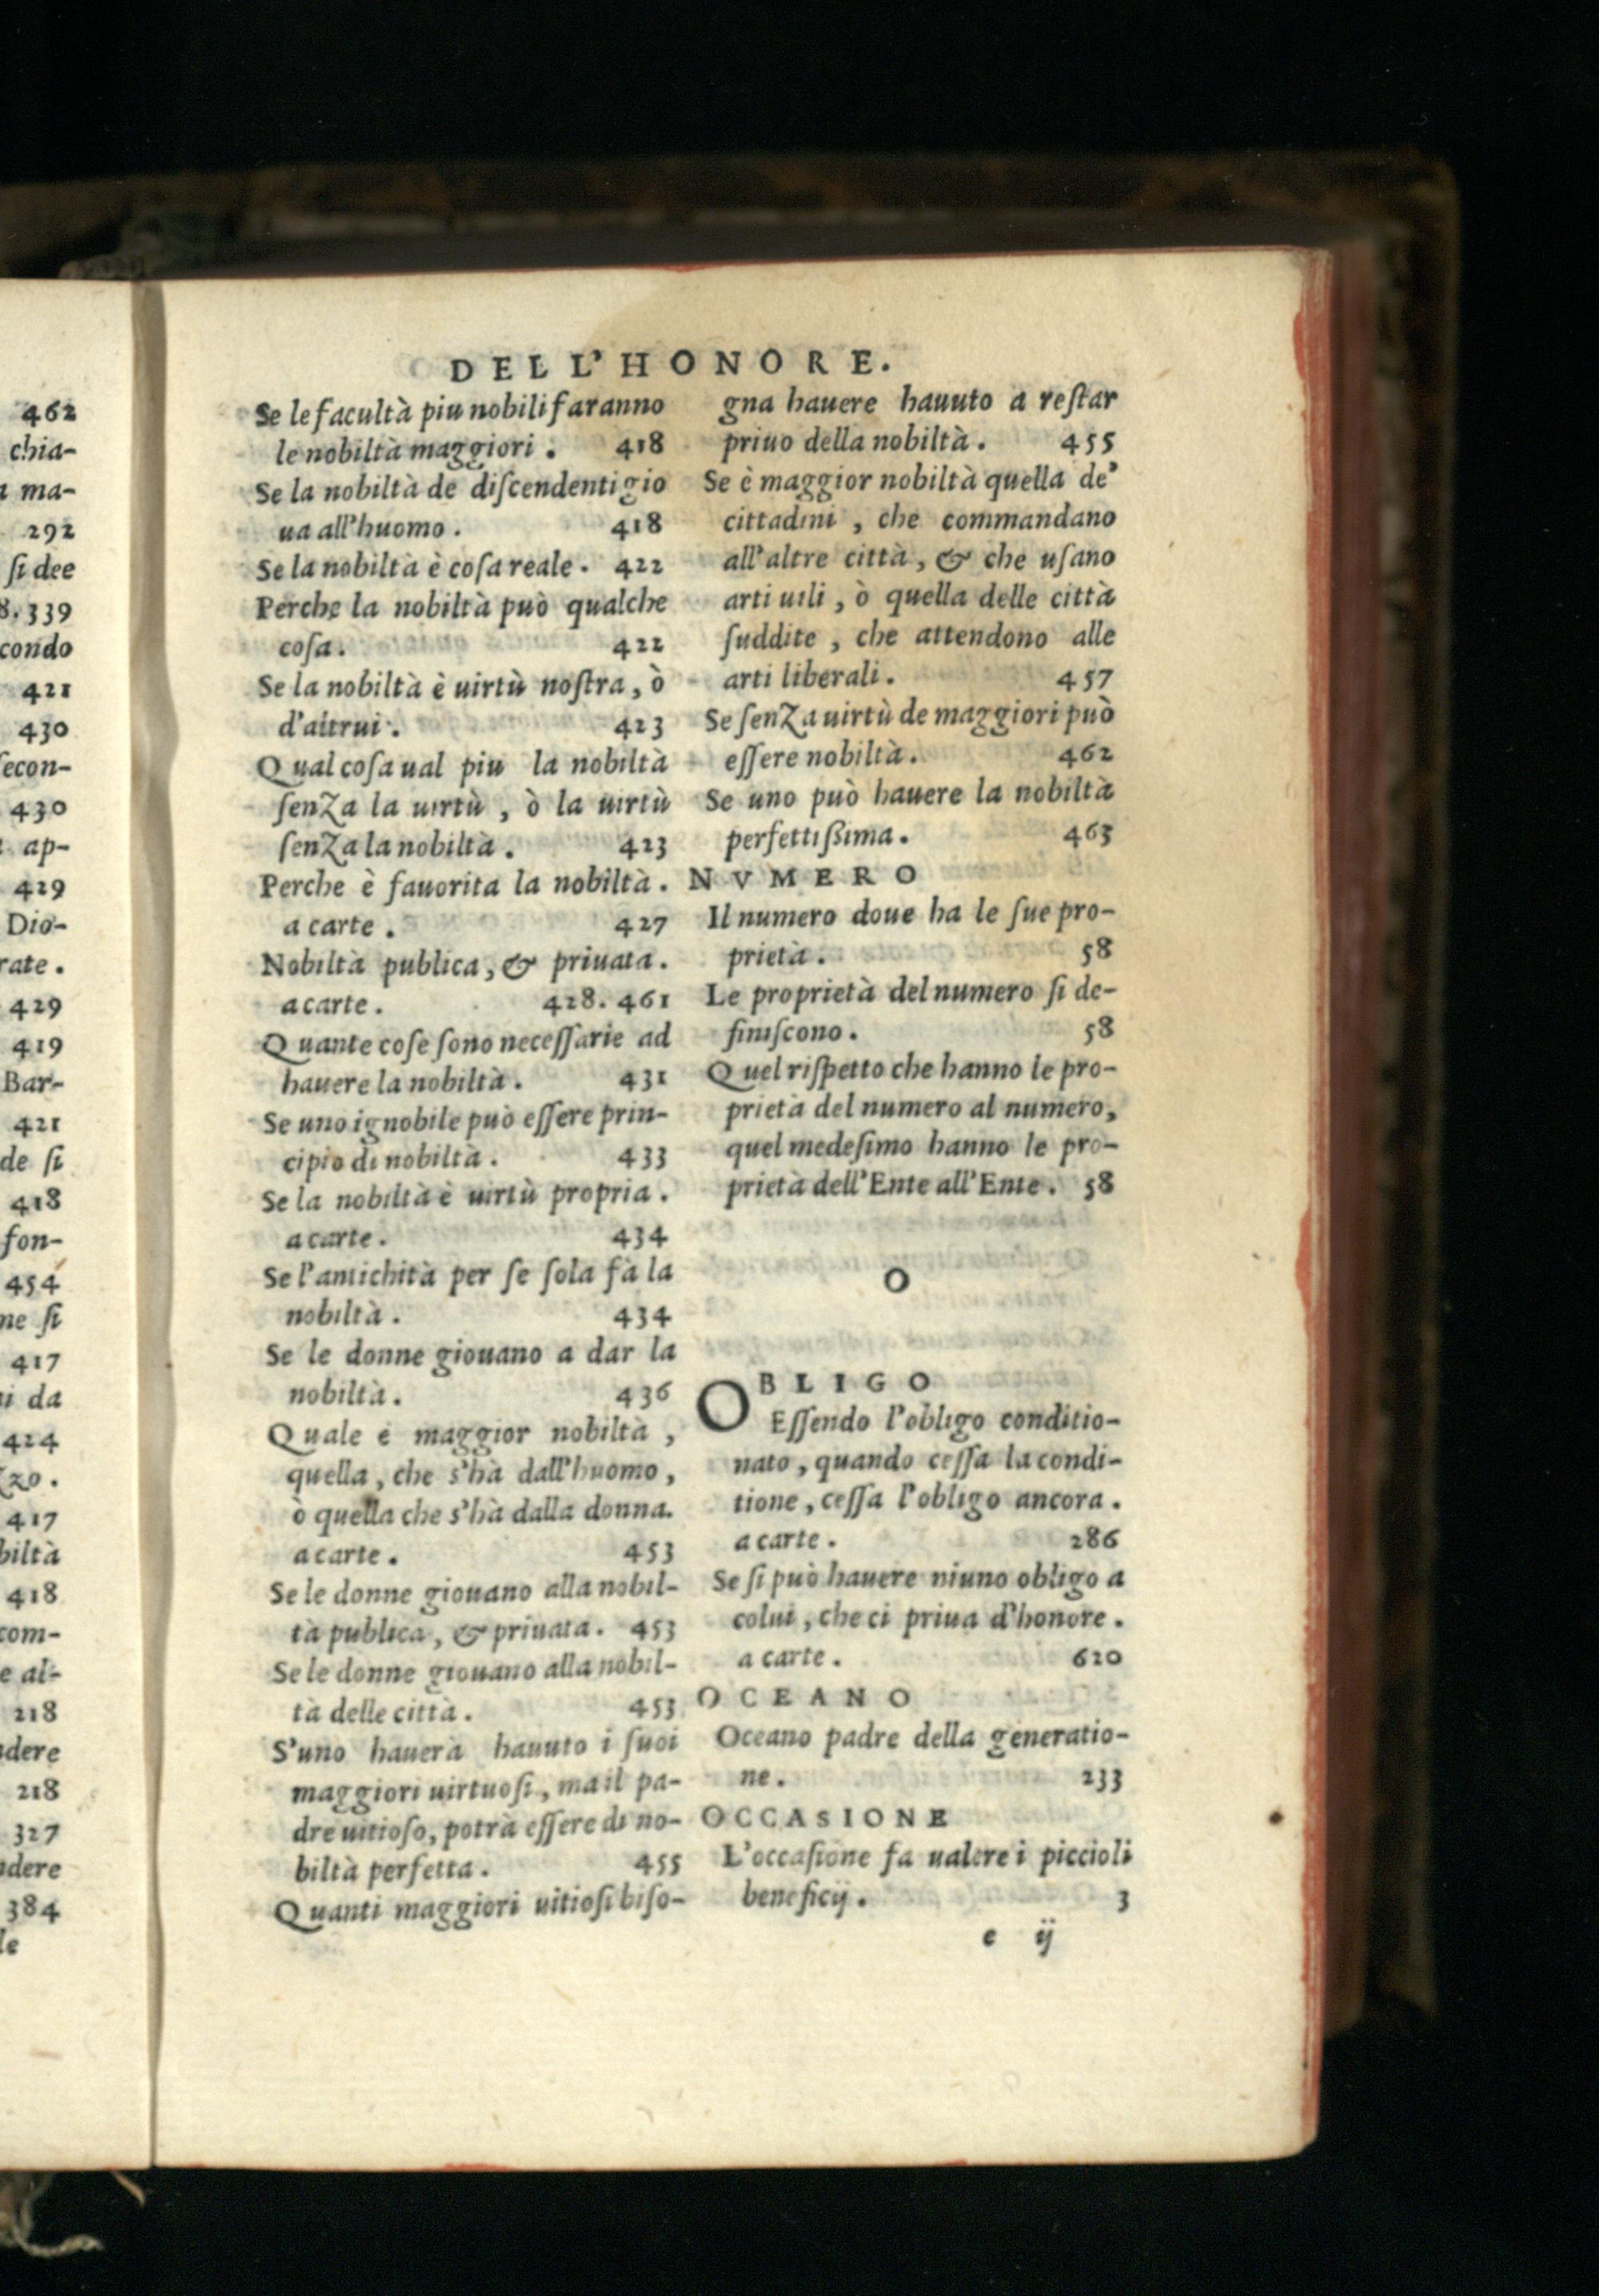 462
chia-
ma-
292
ſi dee
8. 339
condo
421
430
ſecon-
430
ap-
429
Dio-
rate.
429
419
Bar-
421
de ſi
418
fon-
454
ne ſi
417
ni da
424
zo.
417
biltà
418
com-
e al-
218
ndere
218
327
ndere
384
le
DELL'HONORE.
Se le facultà piu nobili faranno
le nobiltà maggiori. 418
Se la nobiltà de diſcendenti gio
ua all'huomo. 418
Se la nobiltà è coſa reale. 422
Perche la nobiltà può qualche
coſa. 422
Se la nobiltà è uirtù noſtra, ò
d'altrui. 423
Qual coſa ual piu la nobiltà
ſenZa la uirtù, ò la uirtù
ſenZa la nobiltà. 423
Perche è fauorita la nobiltà.
a carte. 427
Nobiltà publica, & priuata.
a carte. 428. 461
Quante coſe ſono neceſſarie ad
hauere la nobiltà. 431
Se uno ignobile può eſſere prin-
cipio di nobiltà. 433
Se la nobiltà è uirtù propria.
a carte. 434
Se l'antichità per ſe ſola fà la
nobiltà. 434
Se le donne giouano a dar la
nobiltà. 436
Quale è maggior nobiltà,
quella, che s'hà dall'huomo,
ò quella che s'hà dalla donna.
a carte. 453
Se le donne giouano alla nobil-
tà publica, & priuata. 453
Se le donne giouano alla nobil-
tà delle città. 453
S'uno hauerà hauuto i ſuoi
maggiori uirtuoſi, ma il pa-
dre uitioſo, potrà eſſere di no-
biltà perfetta. 455
Quanti maggiori uitioſi biſo-
gna hauere hauuto a reſtar
priuo della nobiltà. 455
Se è maggior nobiltà quella de'
cittadini, che commandano
all'altre città, & che uſano
arti uili, ò quella delle città
ſuddite, che attendono alle
arti liberali. 457
Se ſenZa uirtù de maggiori può
eſſere nobiltà. 462
Se uno può hauere la nobiltà
perfettißima. 463
NVMERO
Il numero doue ha le ſue pro-
prietà. 58
Le proprietà del numero ſi de-
finiſcono. 58
Quel riſpetto che hanno le pro-
prietà del numero al numero,
quel medeſimo hanno le pro-
prietà dell'Ente all'Ente. 58
O
OBLIGO
Eſſendo l'obligo conditio-
nato, quando ceſſa la condi-
tione, ceſſa l'obligo ancora.
a carte. 286
Se ſi può hauere niuno obligo a
colui, che ci priua d'honore.
a carte. 620
OCEANO
Oceano padre della generatio-
ne. 233
OCCASIONE
L'occaſione fa ualere i piccioli
beneficij. 3
e ij